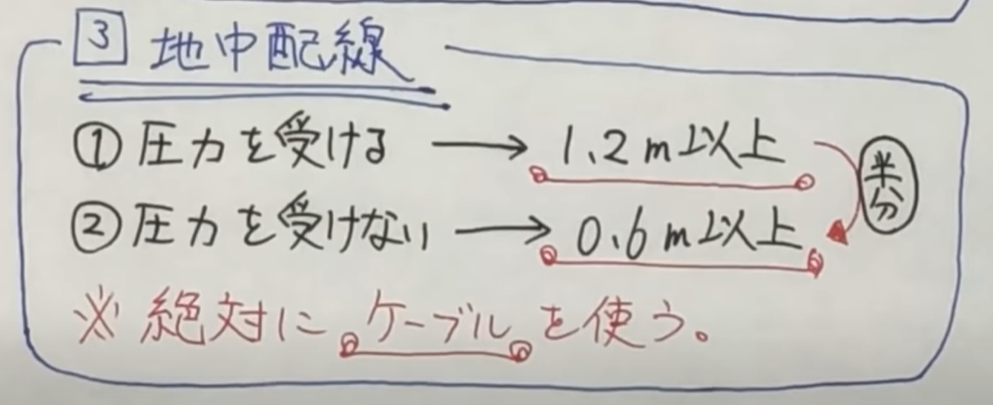 3 地中配線
① 圧力を受ける → 1.2m以上
② 圧力を受けない → 0.6m以上
半分
※ 絶対にケーブルを使う。